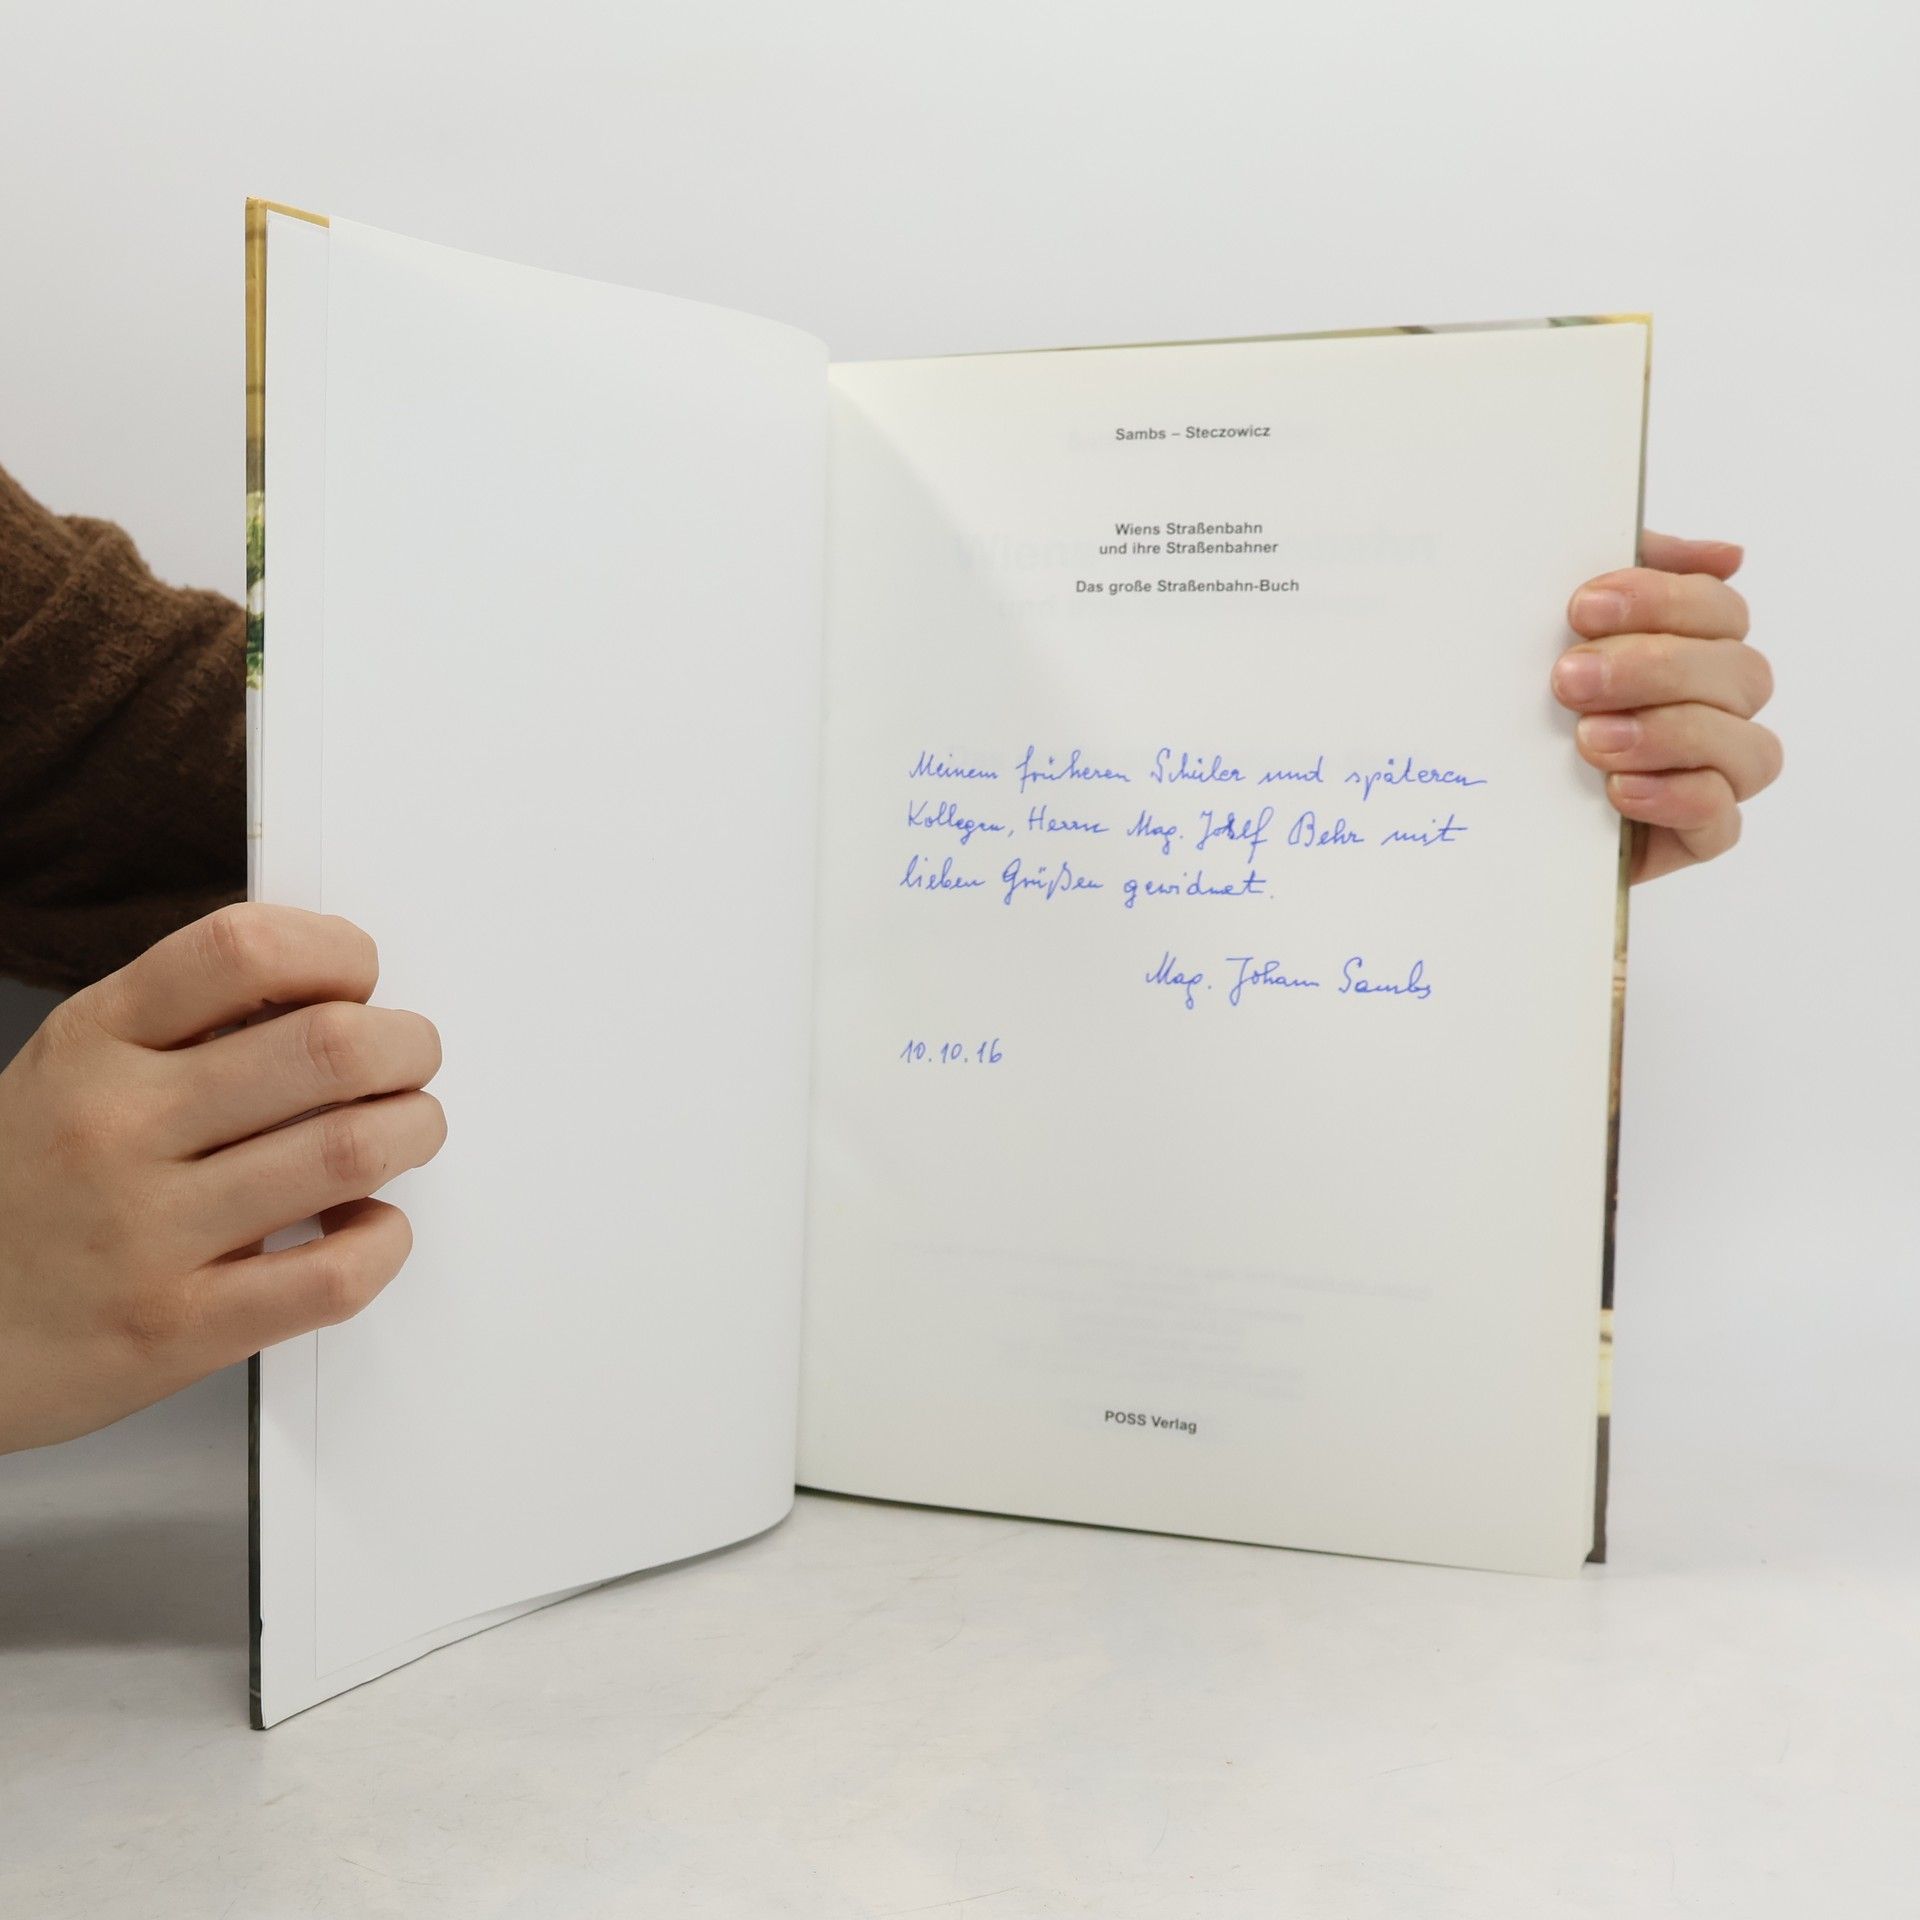 Sambs – Steczowicz
Wiens Straßenbahn
und ihre Straßenbahner
Das große Straßenbahn-Buch
Meinem früheren Schüler und späteren
Kollegen, Herrn Mag. Josef Behr mit
lieben Grüßen gewidmet.
Mag. Johann Sambs
10.10.16
POSS Verlag